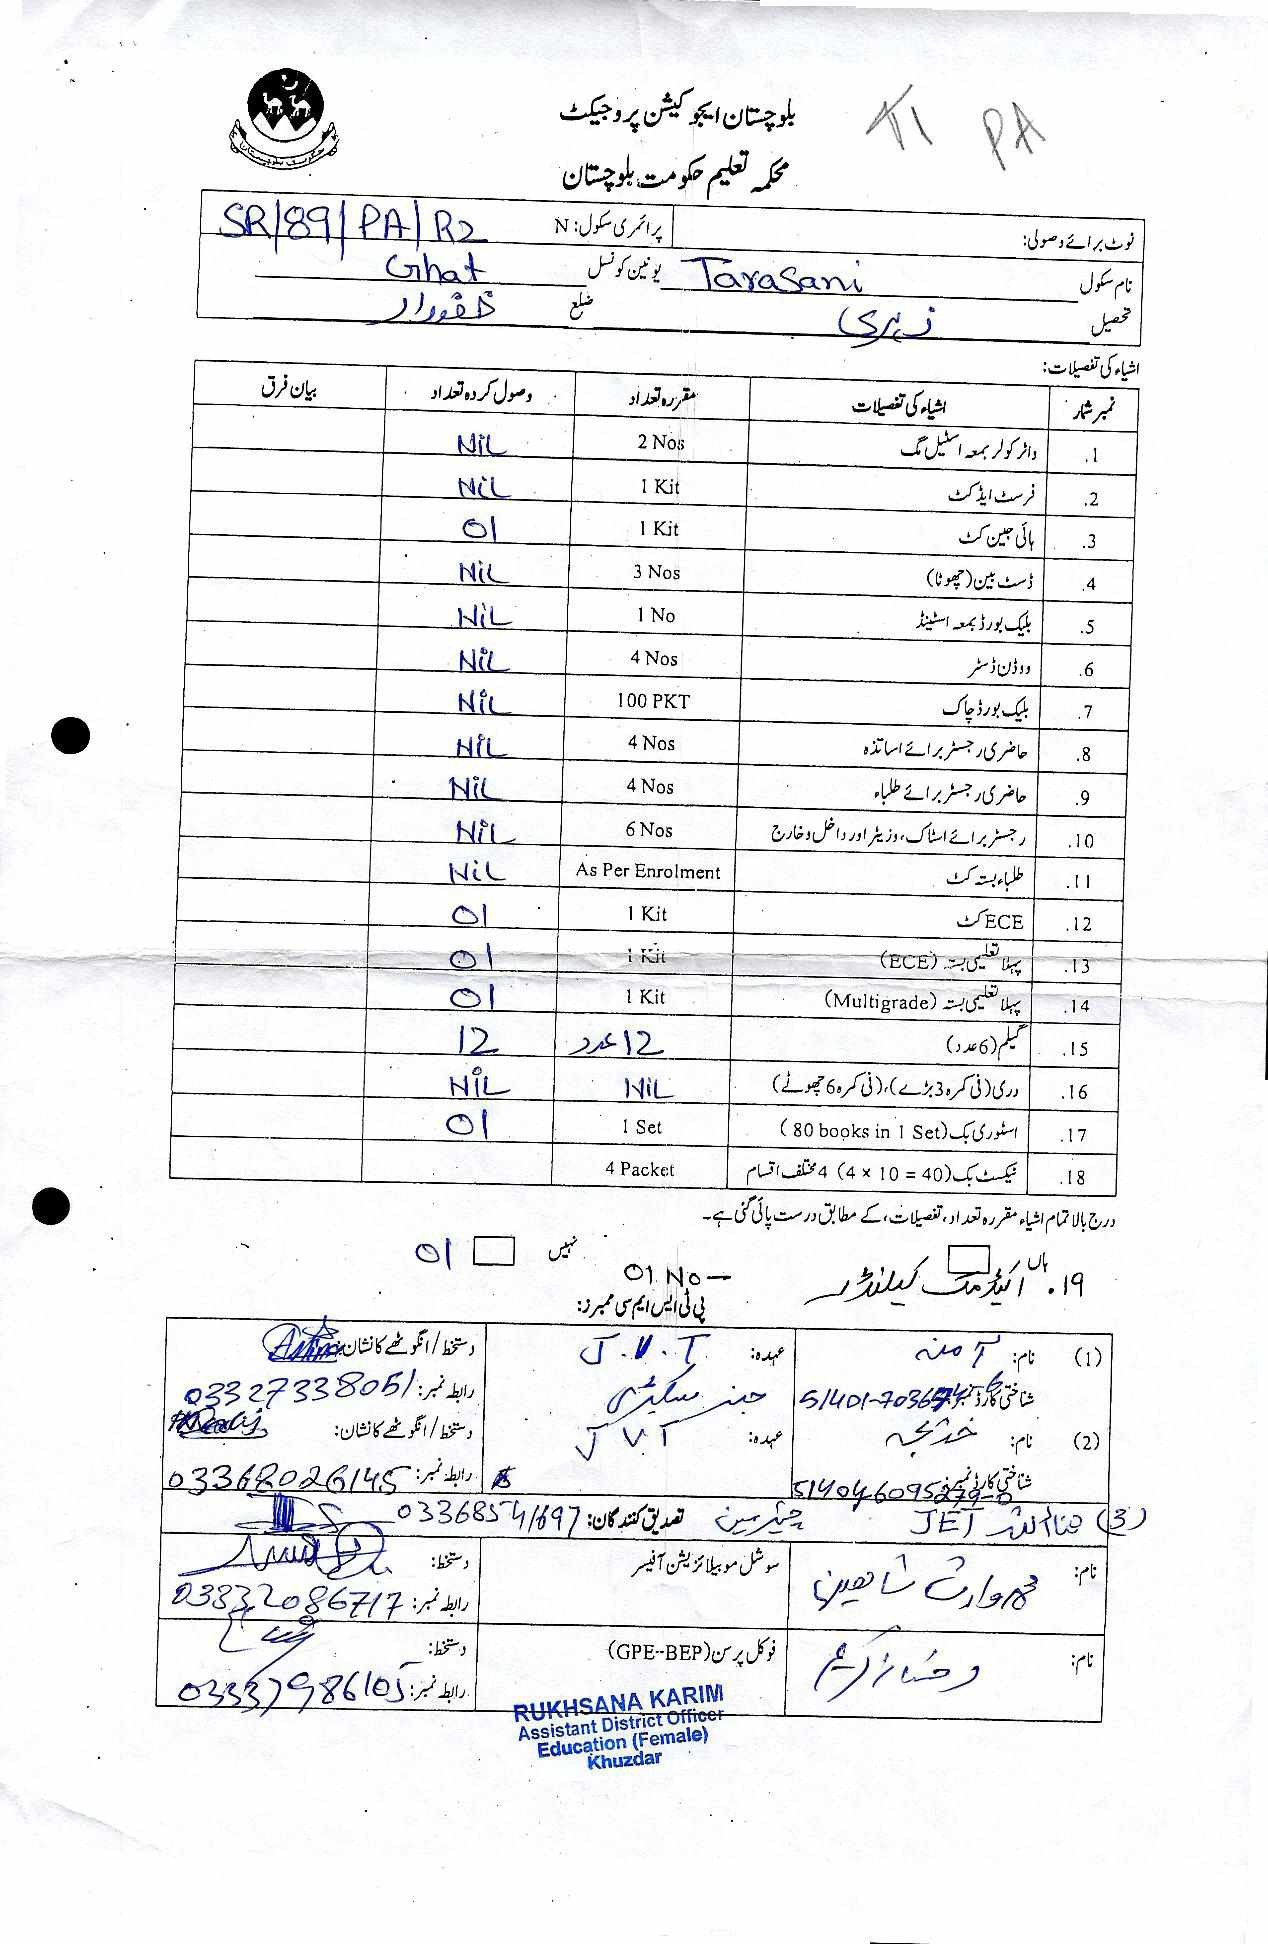 بلوچستان ایجوکیشن پروجیکٹ
T1 PA
محکمہ تعلیم حکومت بلوچستان
نوٹ برائے وصولی: پرائمری سکول: N SR/89/PA/R2
نام سکول Tarasani یونین کونسل Ghat
تحصیل زہری ضلع خضدار
اشیاء کی تفصیلات:
نمبر شمار اشیاء کی تفصیلات مقررہ تعداد وصول کردہ تعداد بیان فرق
1. واٹر کولر بمعہ اسٹیل مگ 2 Nos NiL
2. فرسٹ ایڈ کٹ 1 Kit NiL
3. ہائی جین کٹ 1 Kit 01
4. ڈسٹ بین (چھوٹا) 3 Nos NiL
5. بلیک بورڈ بمعہ اسٹینڈ 1 No NiL
6. ووڈن ڈسٹر 4 Nos NiL
7. بلیک بورڈ چاک 100 PKT NiL
8. حاضری رجسٹر برائے اساتذہ 4 Nos NiL
9. حاضری رجسٹر برائے طلباء 4 Nos NiL
10. رجسٹر برائے اسٹاک، وزیٹر اور داخل وخارج 6 Nos NiL
11. طلباء بستہ کٹ As Per Enrolment NiL
12. ECE کٹ 1 Kit 01
13. پہلا تعلیمی بستہ (ECE) 1 Kit 01
14. پہلا تعلیمی بستہ (Multigrade) 1 Kit 01
15. گلیم (6 عدد) 12 عدد 12
16. دری (فی کمرہ 3 بڑے)، (فی کمرہ 6 چھوٹے) NiL NiL
17. اسٹوری بک (80 books in 1 Set) 1 Set 01
18. ٹیکسٹ بک (4 × 10 = 40) 4 مختلف اقسام 4 Packet
درج بالا تمام اشیاء مقررہ تعداد، تفصیلات، کے مطابق درست پائی گئی ہے۔
ہاں نہیں 01
۱۹. اکیڈمک کیلنڈر 01 No
پی ٹی ایس ایم سی ممبرز:
(1) نام: آمنہ عہدہ: J.V.T دستخط / انگوٹھے کا نشان:
شناختی کارڈ نمبر: جنرل سیکٹری رابطہ نمبر: 03327338051
(2) نام: خدیجہ عہدہ: JVT دستخط / انگوٹھے کا نشان:
شناختی کارڈ نمبر: رابطہ نمبر: 03368026145
(3) JET چیئرمین تصدیق کنندگان: 03368541697
نام: محمد وارث شاھین سوشل موبیلائزیشن آفیسر دستخط:
رابطہ نمبر: 03332086717
نام: رخسانہ کریم فوکل پرسن (GPE--BEP) دستخط:
رابطہ نمبر: 03337986105
RUKHSANA KARIM
Assistant District Officer
Education (Female)
Khuzdar